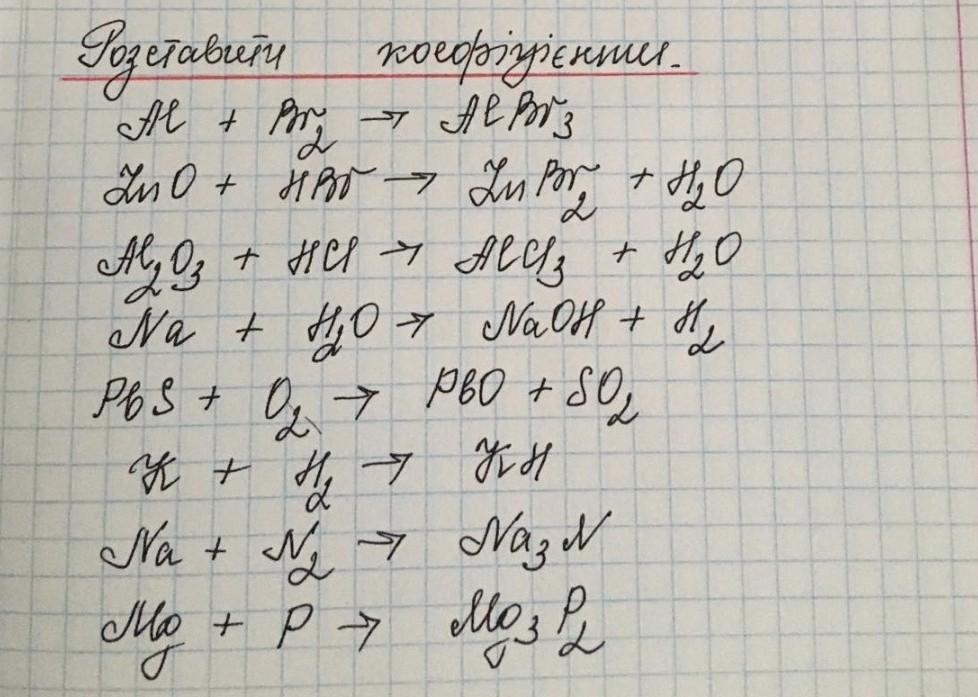 Розставити коефіцієнти.
Al + Br₂ → AlBr₃
ZnO + HBr → ZnBr₂ + H₂O
Al₂O₃ + HCl → AlCl₃ + H₂O
Na + H₂O → NaOH + H₂
PbS + O₂ → PbO + SO₂
K + H₂ → KH
Na + N₂ → Na₃N
Mg + P → Mg₃P₂